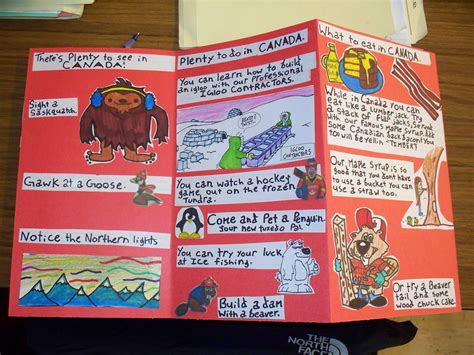 There's Plenty to see in
CANADA!
Sight a
Sasksquatch.
Gawk at a Goose.
Notice the Northern lights
Plenty to do in CANADA.
You can learn how to build
an igloo with our Professional
IGLOO CONTRACTORS.
IGLOO
CONTRACTORS
You can watch a hockey
game, out on the frozen
Tundra.
Come and Pet a Penguin
your new tuxedo Pal.
You can try your luck
at Ice fishing.
Build a dam
With a beaver.
What to eat in CANADA.
While in Canada you can
eat like a lumber jack. Try
a stack of flap jacks, Served
with our famous maple syrup and
some Canadian back bacon! You
too will be yellin' "TIMBER"!
Our Maple Syrup is so
good that you dont have
to use a bucket you can
use a straw too.
Or try a Beaver
tail and some
wood chuck cake.
THE
NORTH
FACE